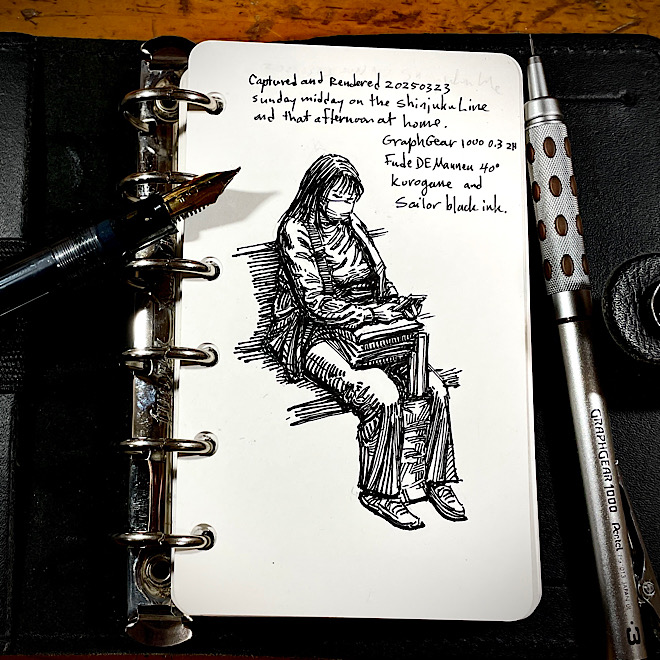 Captured and Rendered 20250323
Sunday midday on the Shinjuku Line
and that afternoon at home.
GraphGear 1000 0.3 2H
Fude DE Mannen 40°
Kurogane and
Sailor black ink.
GRAPHGEAR 1000
Pentel
JAPAN
.3